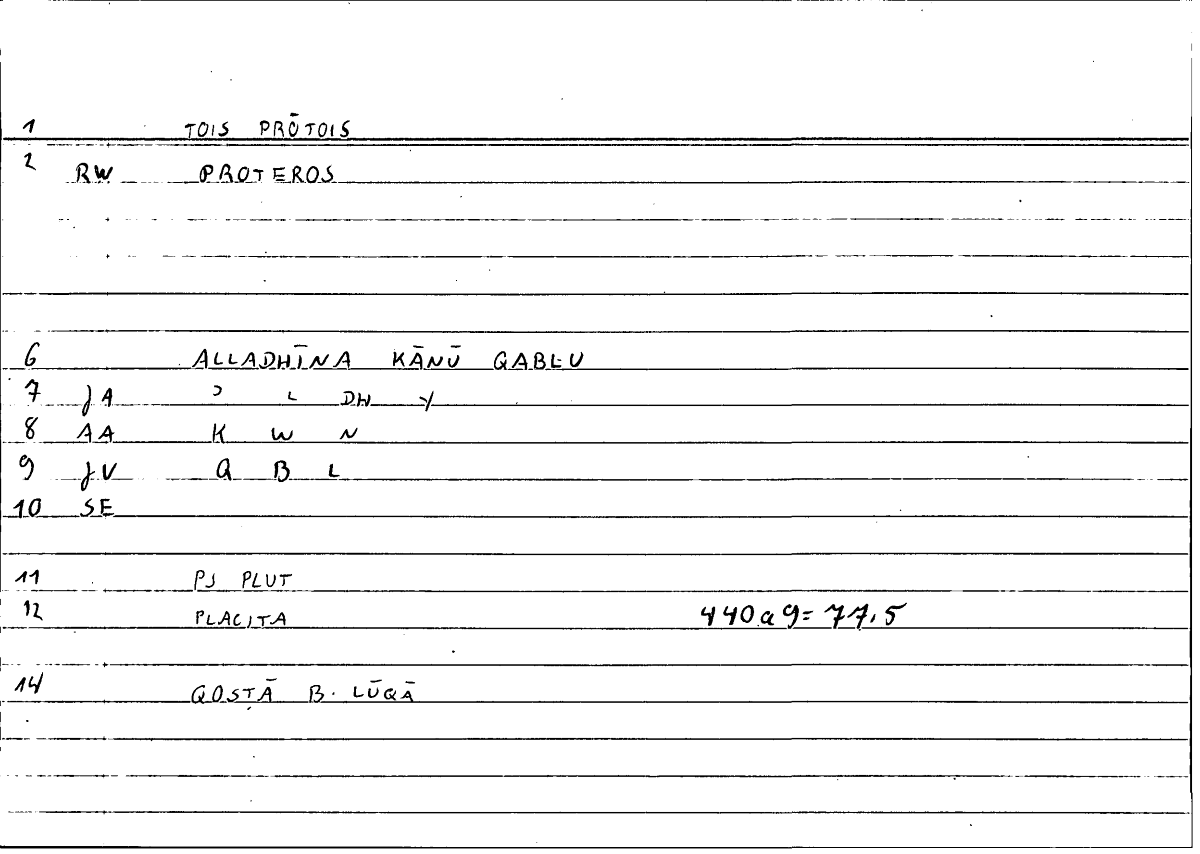 1 TOIS PRŌTOIS
2 RW PROTEROS
6 ALLADHĪNA KĀNŪ QABLU
7 JA ʾ L DH Y
8 AA K W N
9 JV Q B L
10 SE
11 PJ PLUT
12 PLACITA 440a9=77,5
14 QOSṬĀ B. LŪQĀ